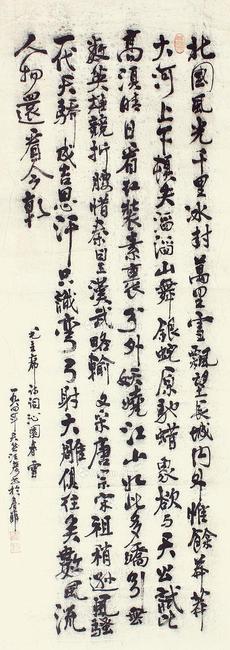 北國風光千里冰封萬里雪飄望長城內外惟餘莽莽
大河上下頓失滔滔山舞銀蛇原馳蠟象欲與天公試比
高須晴日看紅裝素裹分外妖嬈江山如此多嬌引無
數英雄競折腰惜秦皇漢武略輸文采唐宗宋祖稍遜風騷
一代天驕成吉思汗只識彎弓射大雕俱往矣數風流
人物還看今朝
毛主席詩詞沁園春雪